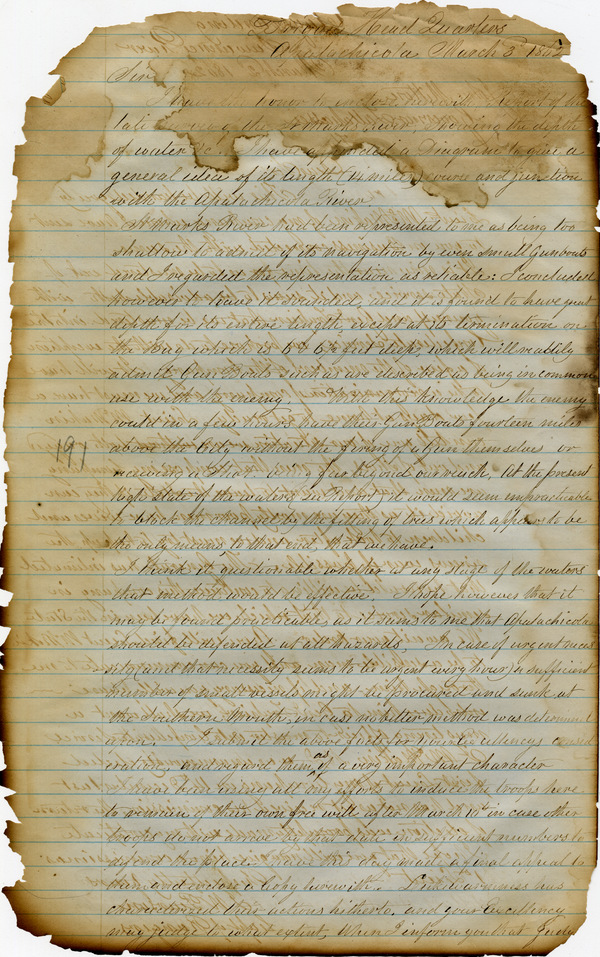 Division Head Quarters
Apalachicola March 3d 1862
Sir
I have the honor to enclose herewith Report of the
late of the St Marks river, showing the depth
of water &c. I have appended a Diagram to give a
general idea of its length (14 miles) course and junction
with the Apalachicola River
St Marks River had been represented to me as being too
shallow to admit of its navigation by even small Gunboats
and I regarded the representation as reliable: I concluded
however to have it sounded, and it is found to have great
depth for its entire length except at its termination on
the Bay which is 6 & 6½ feet deep, which will readily
admit Gun Boats such as are described as being in common
use with the enemy. With this knowledge the enemy
could in a few hours have their Gun Boats fourteen miles
above the City without the firing of a gun themselves or
receiving a Shot being far beyond our reach. At the present
191
high state of the waters, see Report, it would seem impracticable
to block the channel by the falling of trees which appears to be
the only means to that end, that we have.
I think it questionable whether at any stage of the waters
that method would be effective. I hope however that it
may be found practicable, as it seems to me that Apalachicola
should be defended at all hazards. In case of urgent neces
sity (and that necessity seems to be urgent every hour) a sufficient
number of small vessels might be procured and sunk at
the Southern Mouth, in case no better method was determined
upon. I submit the above facts for your Excellencys consid
eration and regard them as of a very important character
I have been using all my efforts to induce the troops here
to remain of their own free will after March 10th in case other
troops do not arrive by that date in sufficient numbers to
defend the place. I have this day made a final appeal to
them and enclose a Copy herewith. Lukewarmness has
characterized their actions hitherto, and your Excellency
may judge to what extent, when I inform you that